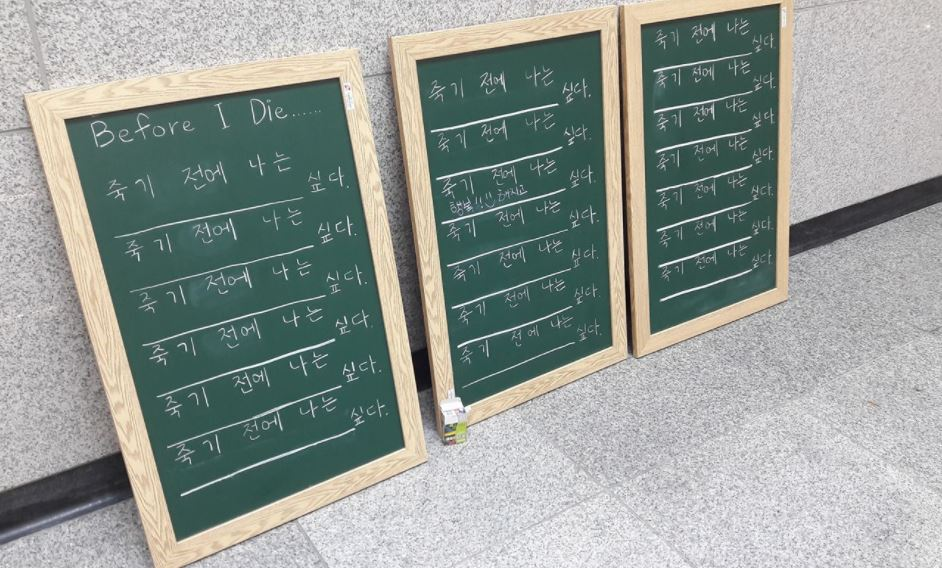 Before I Die......
죽기 전에 나는
싶다.
죽기 전에 나는
싶다.
죽기 전에 나는
싶다.
죽기 전에 나는
싶다.
죽기 전에 나는
싶다.
죽기 전에 나는
싶다.
죽기 전에 나는
싶다.
죽기 전에 나는
싶다.
죽기 전에 나는
행복!! 해지고 싶다.
죽기 전에 나는
싶다.
죽기 전에 나는
싶다.
죽기 전에 나는
싶다.
죽기 전에 나는
싶다.
죽기 전에 나는
싶다.
죽기 전에 나는
싶다.
죽기 전에 나는
싶다.
죽기 전에 나는
싶다.
죽기 전에 나는
싶다.
죽기 전에 나는
싶다.
죽기 전에 나는
싶다.